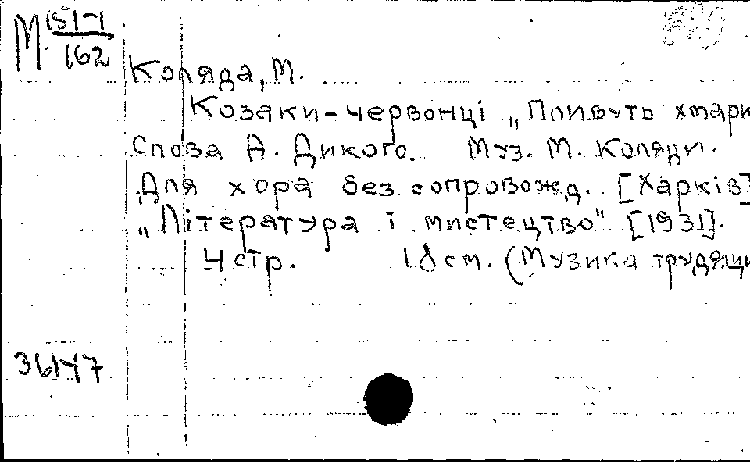 М 1571/162
Коляда, М.
Козаки-червонці „Пливуть хмари
Слова А. Дикого. Муз. М. Коляди.
Для хора без сопровожд. [Харків]
„Література і мистецтво" [1931].
4 стр. 18 см. (Музика трудящи